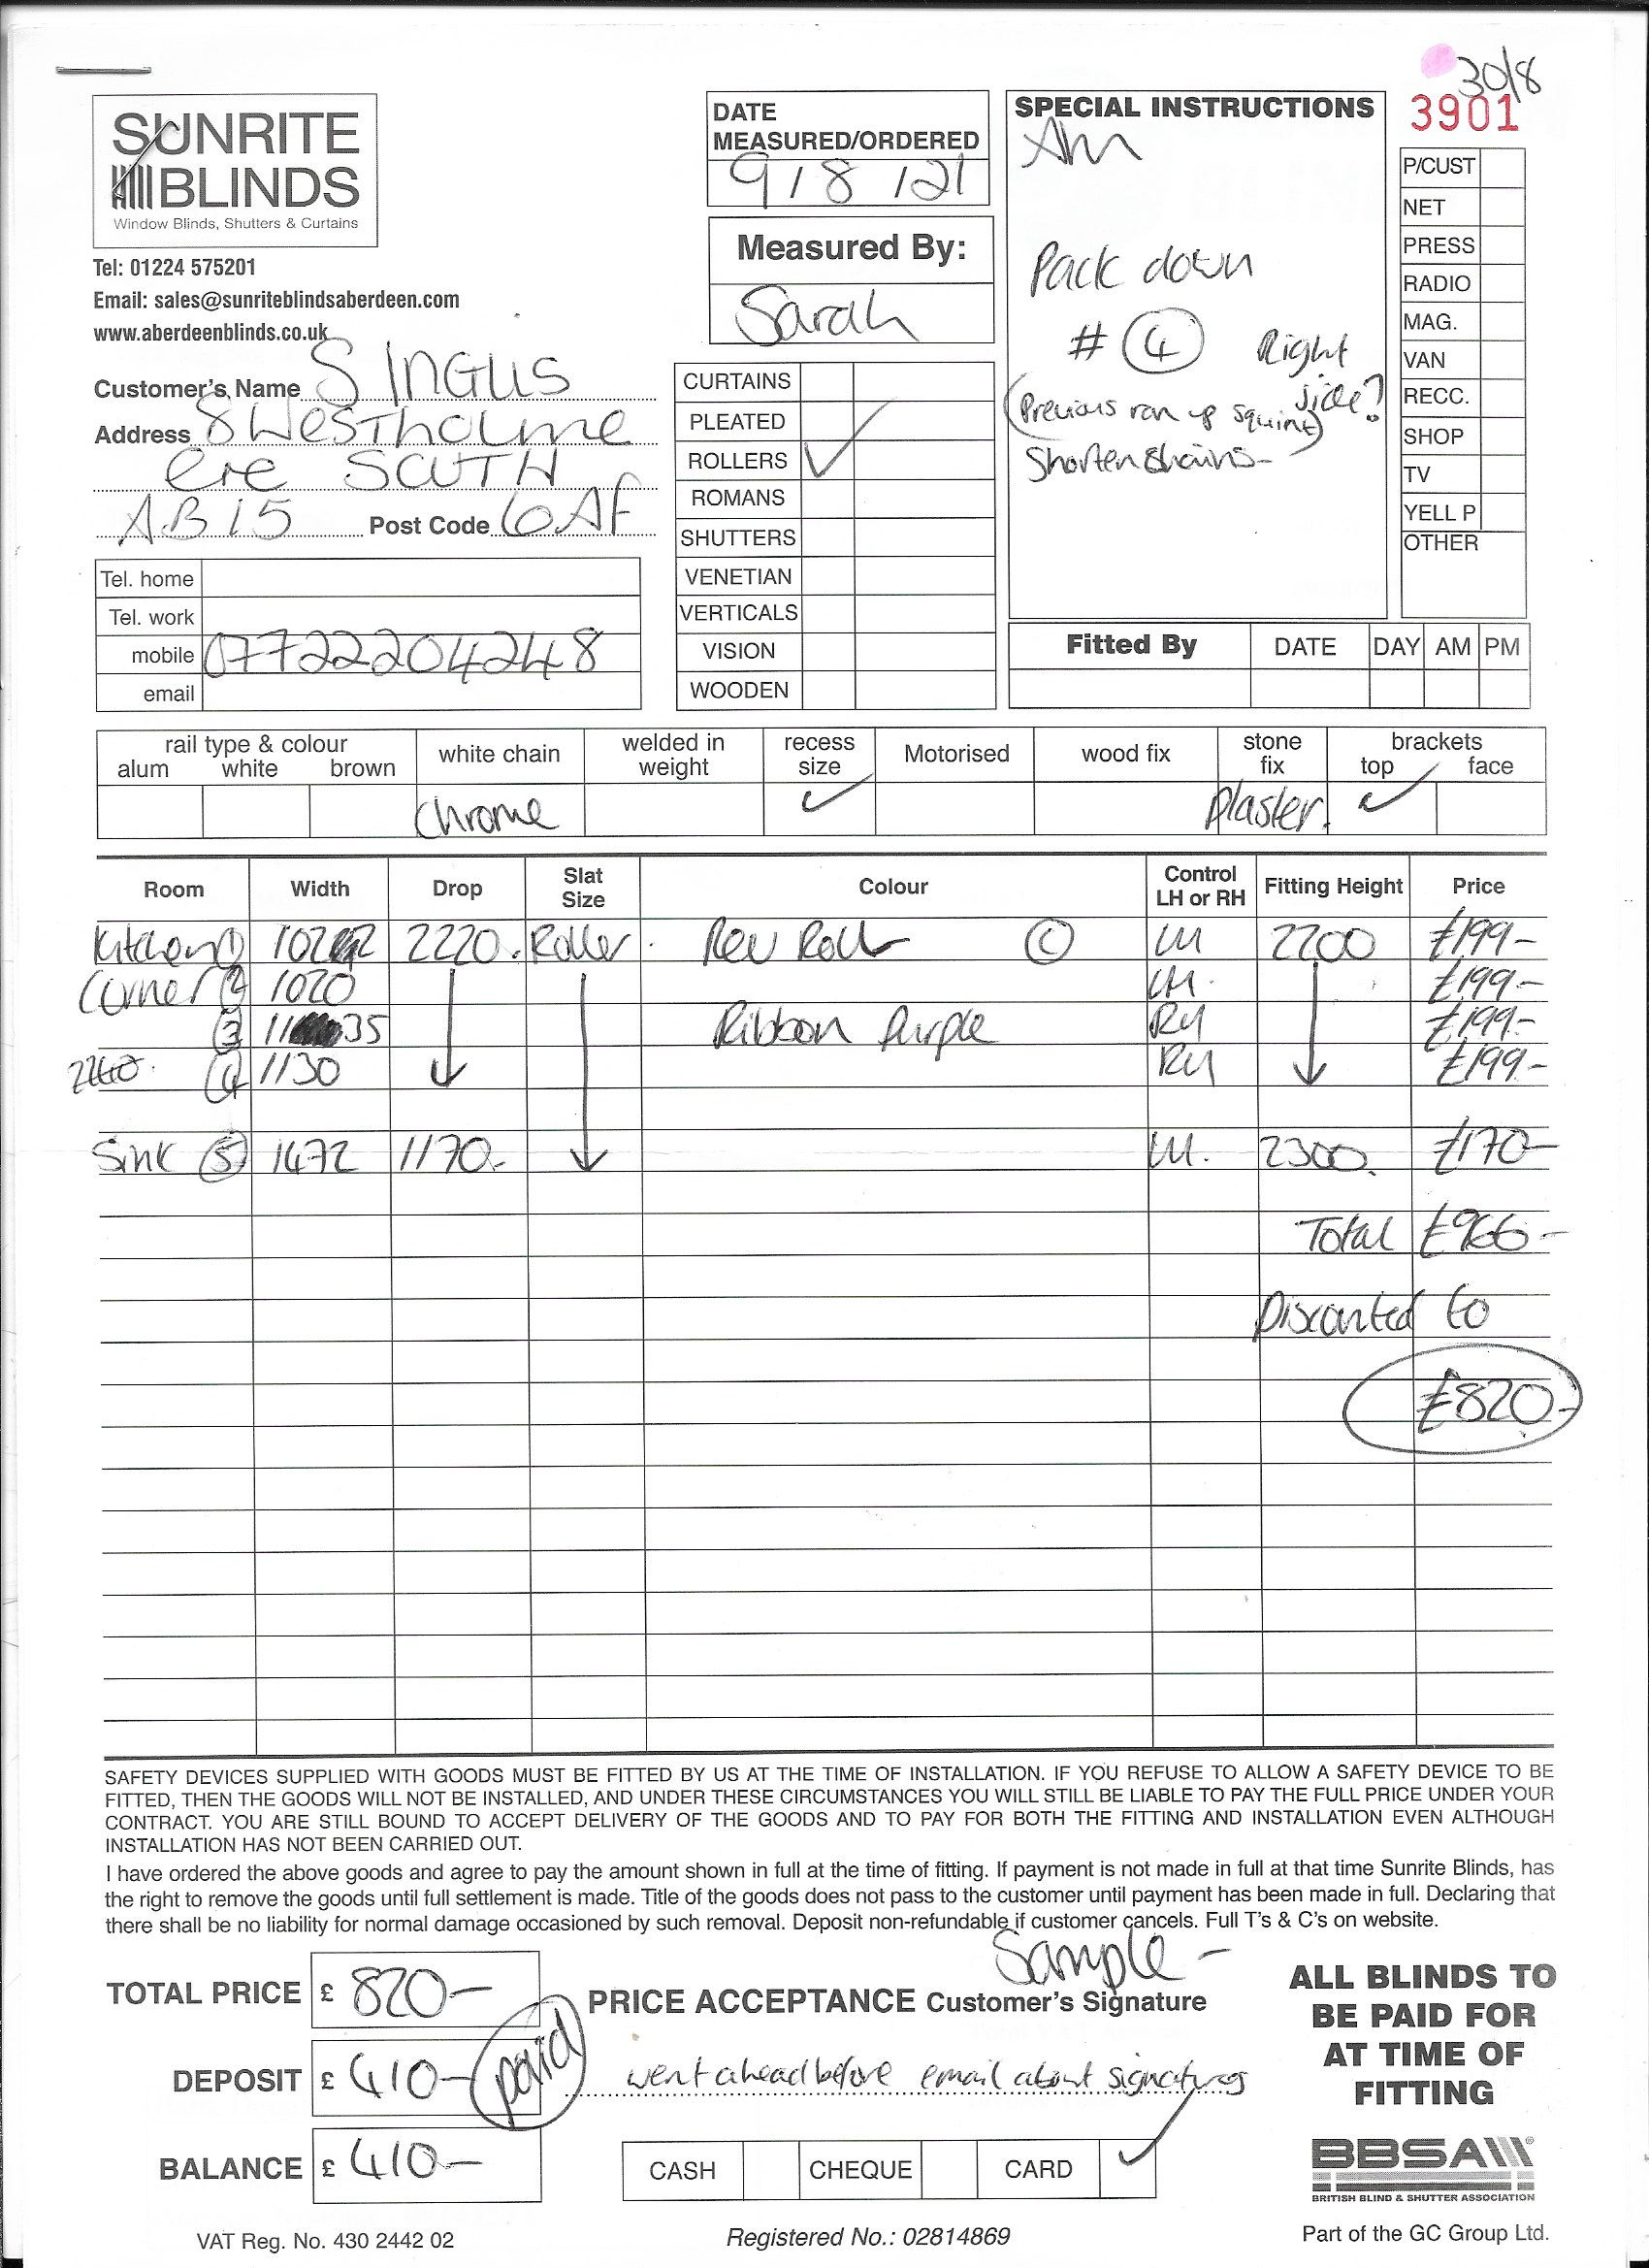 30/8
3901
SUNRITE
BLINDS
Window Blinds, Shutters & Curtains
Tel: 01224 575201
Email: sales@sunriteblindsaberdeen.com
www.aberdeenblinds.co.uk
Customer's Name S INGLIS
Address 8 Westholme
cre SOUTH
AB15 Post Code 6AF
Tel. home
Tel. work
mobile 07722204248
email
DATE
MEASURED/ORDERED
9/8/21
Measured By:
Sarah
CURTAINS
PLEATED
ROLLERS ✓
ROMANS
SHUTTERS
VENETIAN
VERTICALS
VISION
WOODEN
SPECIAL INSTRUCTIONS
Am
Pack down
# 4 Right
side?
(Previous ran up squint)
Shorten chains-
P/CUST
NET
PRESS
RADIO
MAG.
VAN
RECC.
SHOP
TV
YELL P
OTHER
Fitted By DATE DAY AM PM
rail type & colour
alum white brown
white chain
welded in
weight
recess
size
Motorised
wood fix
stone
fix
brackets
top face
Chrome ✓ Plaster. ✓
Room Width Drop Slat Size Colour Control LH or RH Fitting Height Price
Kitchen 1 2220. Roller. Rev Roll C LH 2200 £199-
Corner 2 1020 LH. £199-
3 1135 Ribbon Purple RH £199-
4 1130 RH £199-
Sink 5 1472 1170- LH. 2300. £170-
Total £966-
Discounted to
£820-
SAFETY DEVICES SUPPLIED WITH GOODS MUST BE FITTED BY US AT THE TIME OF INSTALLATION. IF YOU REFUSE TO ALLOW A SAFETY DEVICE TO BE
FITTED, THEN THE GOODS WILL NOT BE INSTALLED, AND UNDER THESE CIRCUMSTANCES YOU WILL STILL BE LIABLE TO PAY THE FULL PRICE UNDER YOUR
CONTRACT. YOU ARE STILL BOUND TO ACCEPT DELIVERY OF THE GOODS AND TO PAY FOR BOTH THE FITTING AND INSTALLATION EVEN ALTHOUGH
INSTALLATION HAS NOT BEEN CARRIED OUT.
I have ordered the above goods and agree to pay the amount shown in full at the time of fitting. If payment is not made in full at that time Sunrite Blinds, has
the right to remove the goods until full settlement is made. Title of the goods does not pass to the customer until payment has been made in full. Declaring that
there shall be no liability for normal damage occasioned by such removal. Deposit non-refundable if customer cancels. Full T's & C's on website.
Sample -
TOTAL PRICE £ 820-
PRICE ACCEPTANCE Customer's Signature
DEPOSIT £ 410- paid
went ahead before email about signatures
BALANCE £ 410-
CASH CHEQUE CARD ✓
ALL BLINDS TO
BE PAID FOR
AT TIME OF
FITTING
BBSA
BRITISH BLIND & SHUTTER ASSOCIATION
VAT Reg. No. 430 2442 02
Registered No.: 02814869
Part of the GC Group Ltd.